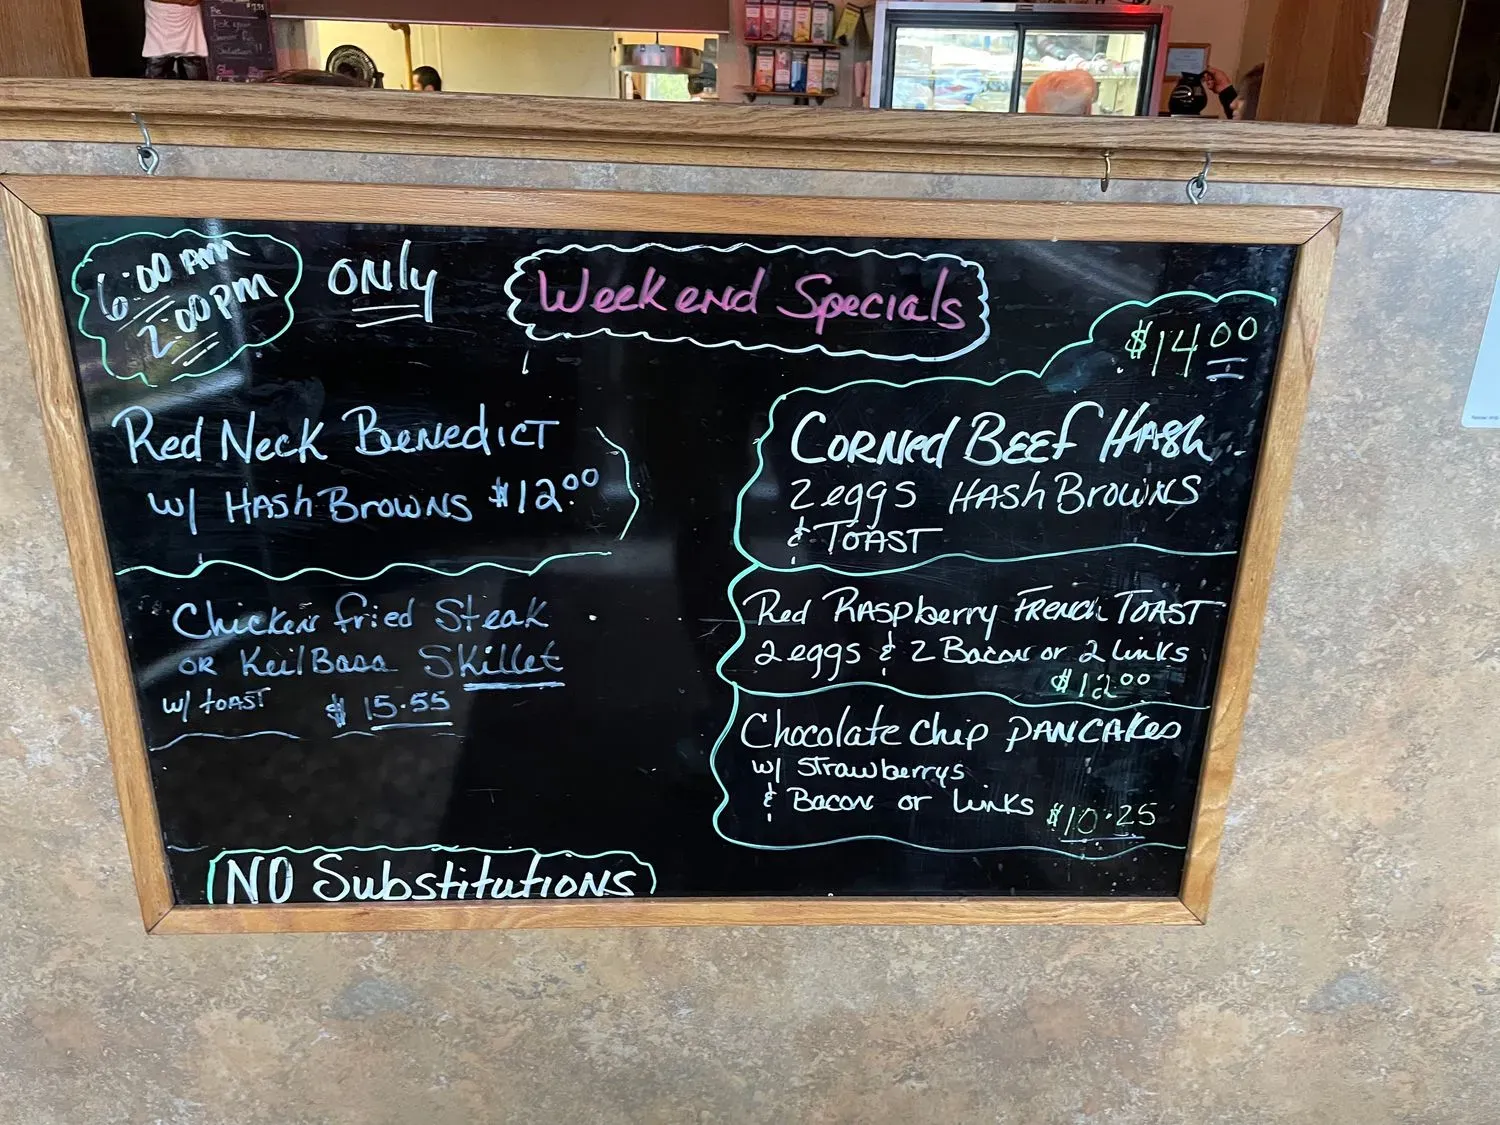 6:00 AM
2:00 PM
ONly
Weekend Specials
Red Neck Benedict
w/ HashBrowns $12.00
Chicken fried Steak
or KeilBasa Skillet
w/ toast $15.55
NO Substitutions
$14.00
Corned Beef Hash
2 eggs HashBrowns
& Toast
Red Raspberry French Toast
2 eggs & 2 Bacon or 2 links
$12.00
Chocolate Chip Pancakes
w/ Strawberrys
& Bacon or Links $10.25